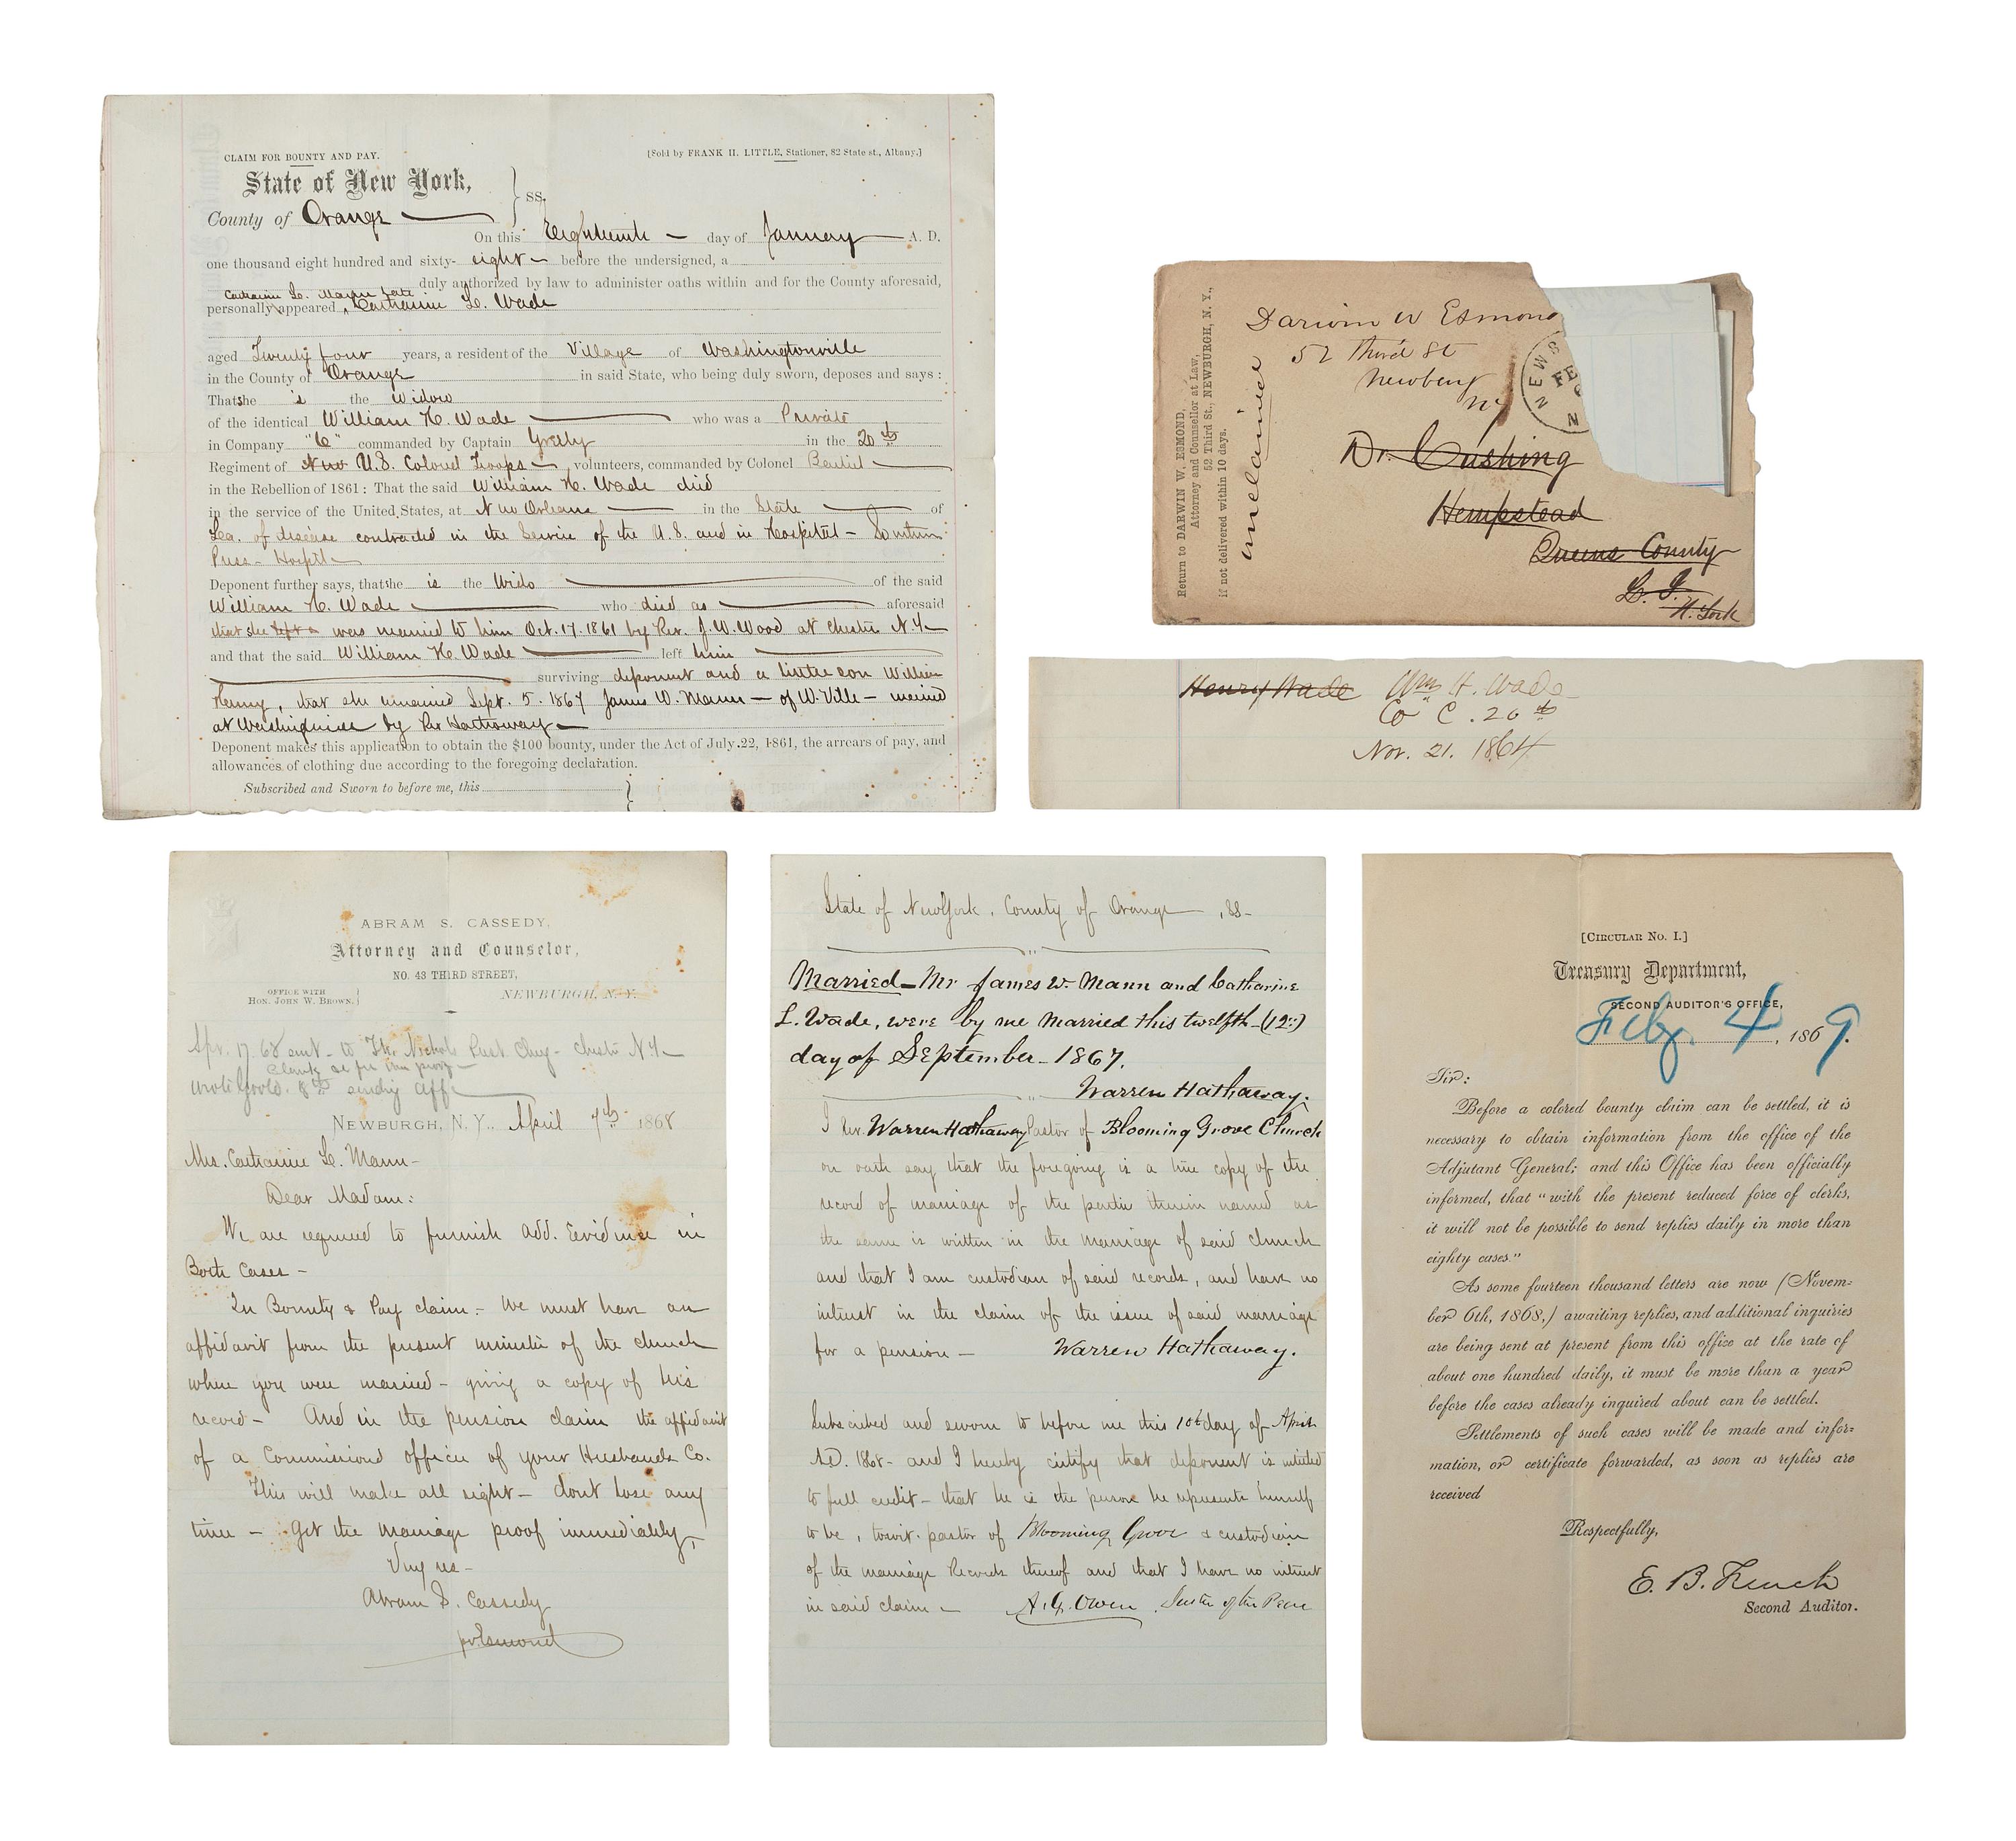 CLAIM FOR BOUNTY AND PAY.
[Sold by FRANK H. LITTLE, Stationer, 82 State st., Albany.]
State of New York,
County of Orange
} ss.
On this Eighteenth day of January A. D.
one thousand eight hundred and sixty- eight before the undersigned, a
duly authorized by law to administer oaths within and for the County aforesaid,
Catharine L. Mann late
personally appeared Catharine L. Wade
aged Twenty four years, a resident of the Village of Washingtonville
in the County of Orange in said State, who being duly sworn, deposes and says:
That she is the Widow
of the identical William H. Wade who was a Private
in Company "C" commanded by Captain in the 20th
Regiment of New U.S. Colored Troops volunteers, commanded by Colonel
in the Rebellion of 1861: That the said William H. Wade died
in the service of the United States, at New Orleans in the State of
Lea. of disease contracted in the Service of the U.S. and in Hospital
Deponent further says, that she is the Wido of the said
William H. Wade who died as aforesaid
that she was married to him Oct. 17. 1861 by Rev. J. W. Wood at Chester N.Y.
and that the said William H. Wade left him
surviving deponent and a little son William
Henry, that she remarried Sept. 5. 1867 James W. Mann — of W.Ville — married
at by Rev Hathaway
Deponent makes this application to obtain the $100 bounty, under the Act of July 22, 1861, the arrears of pay, and
allowances of clothing due according to the foregoing declaration.
Subscribed and Sworn to before me, this
Return to DARWIN W. ESMOND,
Attorney and Counsellor at Law,
52 Third St., NEWBURGH, N. Y.,
if not delivered within 10 days.
unclaimed
Darwin W Esmond
52 Third St
Newburg
NY
NEW
FE
N
Dr. Cushing
Hempstead
Queens County
L. I.
N. York
Henry Wade Wm H. Wade
Co C. 20th
Nov. 21. 1864
ABRAM S. CASSEDY,
Attorney and Counselor,
NO. 43 THIRD STREET,
OFFICE WITH
HON. JOHN W. BROWN.
NEWBURGH, N. Y.
Apr. 17. 68 sent to Nichols Chester N.Y.
8th sending Aff
NEWBURGH, N. Y., April 7th 1868
Mrs. Catharine L. Mann-
Dear Madam:
We are required to furnish add. Evidence in
Both Cases -
In Bounty & Pay claim - We must have an
affidavit from the present minister of the church
where you were married - giving a copy of his
record - And in the pension claim the affidavit
of a Commissioned officer of your Husbands Co.
This will make all right - dont lose any
time - Get the marriage proof immediately,
Abram S. Cassedy
pr Esmond
State of New York, County of Orange , ss-
Married - Mr James W. Mann and Catharine
L. Wade, were by me Married this twelfth - (12th)
day of September - 1867.
Warren Hathaway.
I Rev. Warren Hathaway Pastor of Blooming Grove Church
on oath say that the foregoing is a true copy of the
record of marriage of the parties therein named as
the same is written in the marriage of said church
and that I am custodian of said records, and have no
interest in the claim of the issue of said marriage
for a pension — Warren Hathaway.
Subscribed and sworn to before me this 10th day of April
A.D. 1868 - and I hereby certify that deponent is entitled
to full credit - that he is the person he represents himself
to be, towit. pastor of Blooming Grove & custodian
of the marriage Records thereof and that I have no interest
in said claim - A. G. Owen Justice of the Peace
[CIRCULAR No. 1.]
Treasury Department,
SECOND AUDITOR'S OFFICE,
Feby. 4, 1869.
Sir:
Before a colored bounty claim can be settled, it is
necessary to obtain information from the office of the
Adjutant General; and this Office has been officially
informed, that "with the present reduced force of clerks,
it will not be possible to send replies daily in more than
eighty cases."
As some fourteen thousand letters are now (Novem-
ber 6th, 1868,) awaiting replies, and additional inquiries
are being sent at present from this office at the rate of
about one hundred daily, it must be more than a year
before the cases already inquired about can be settled.
Settlements of such cases will be made and infor-
mation, or certificate forwarded, as soon as replies are
received
Respectfully,
E. B. French
Second Auditor.